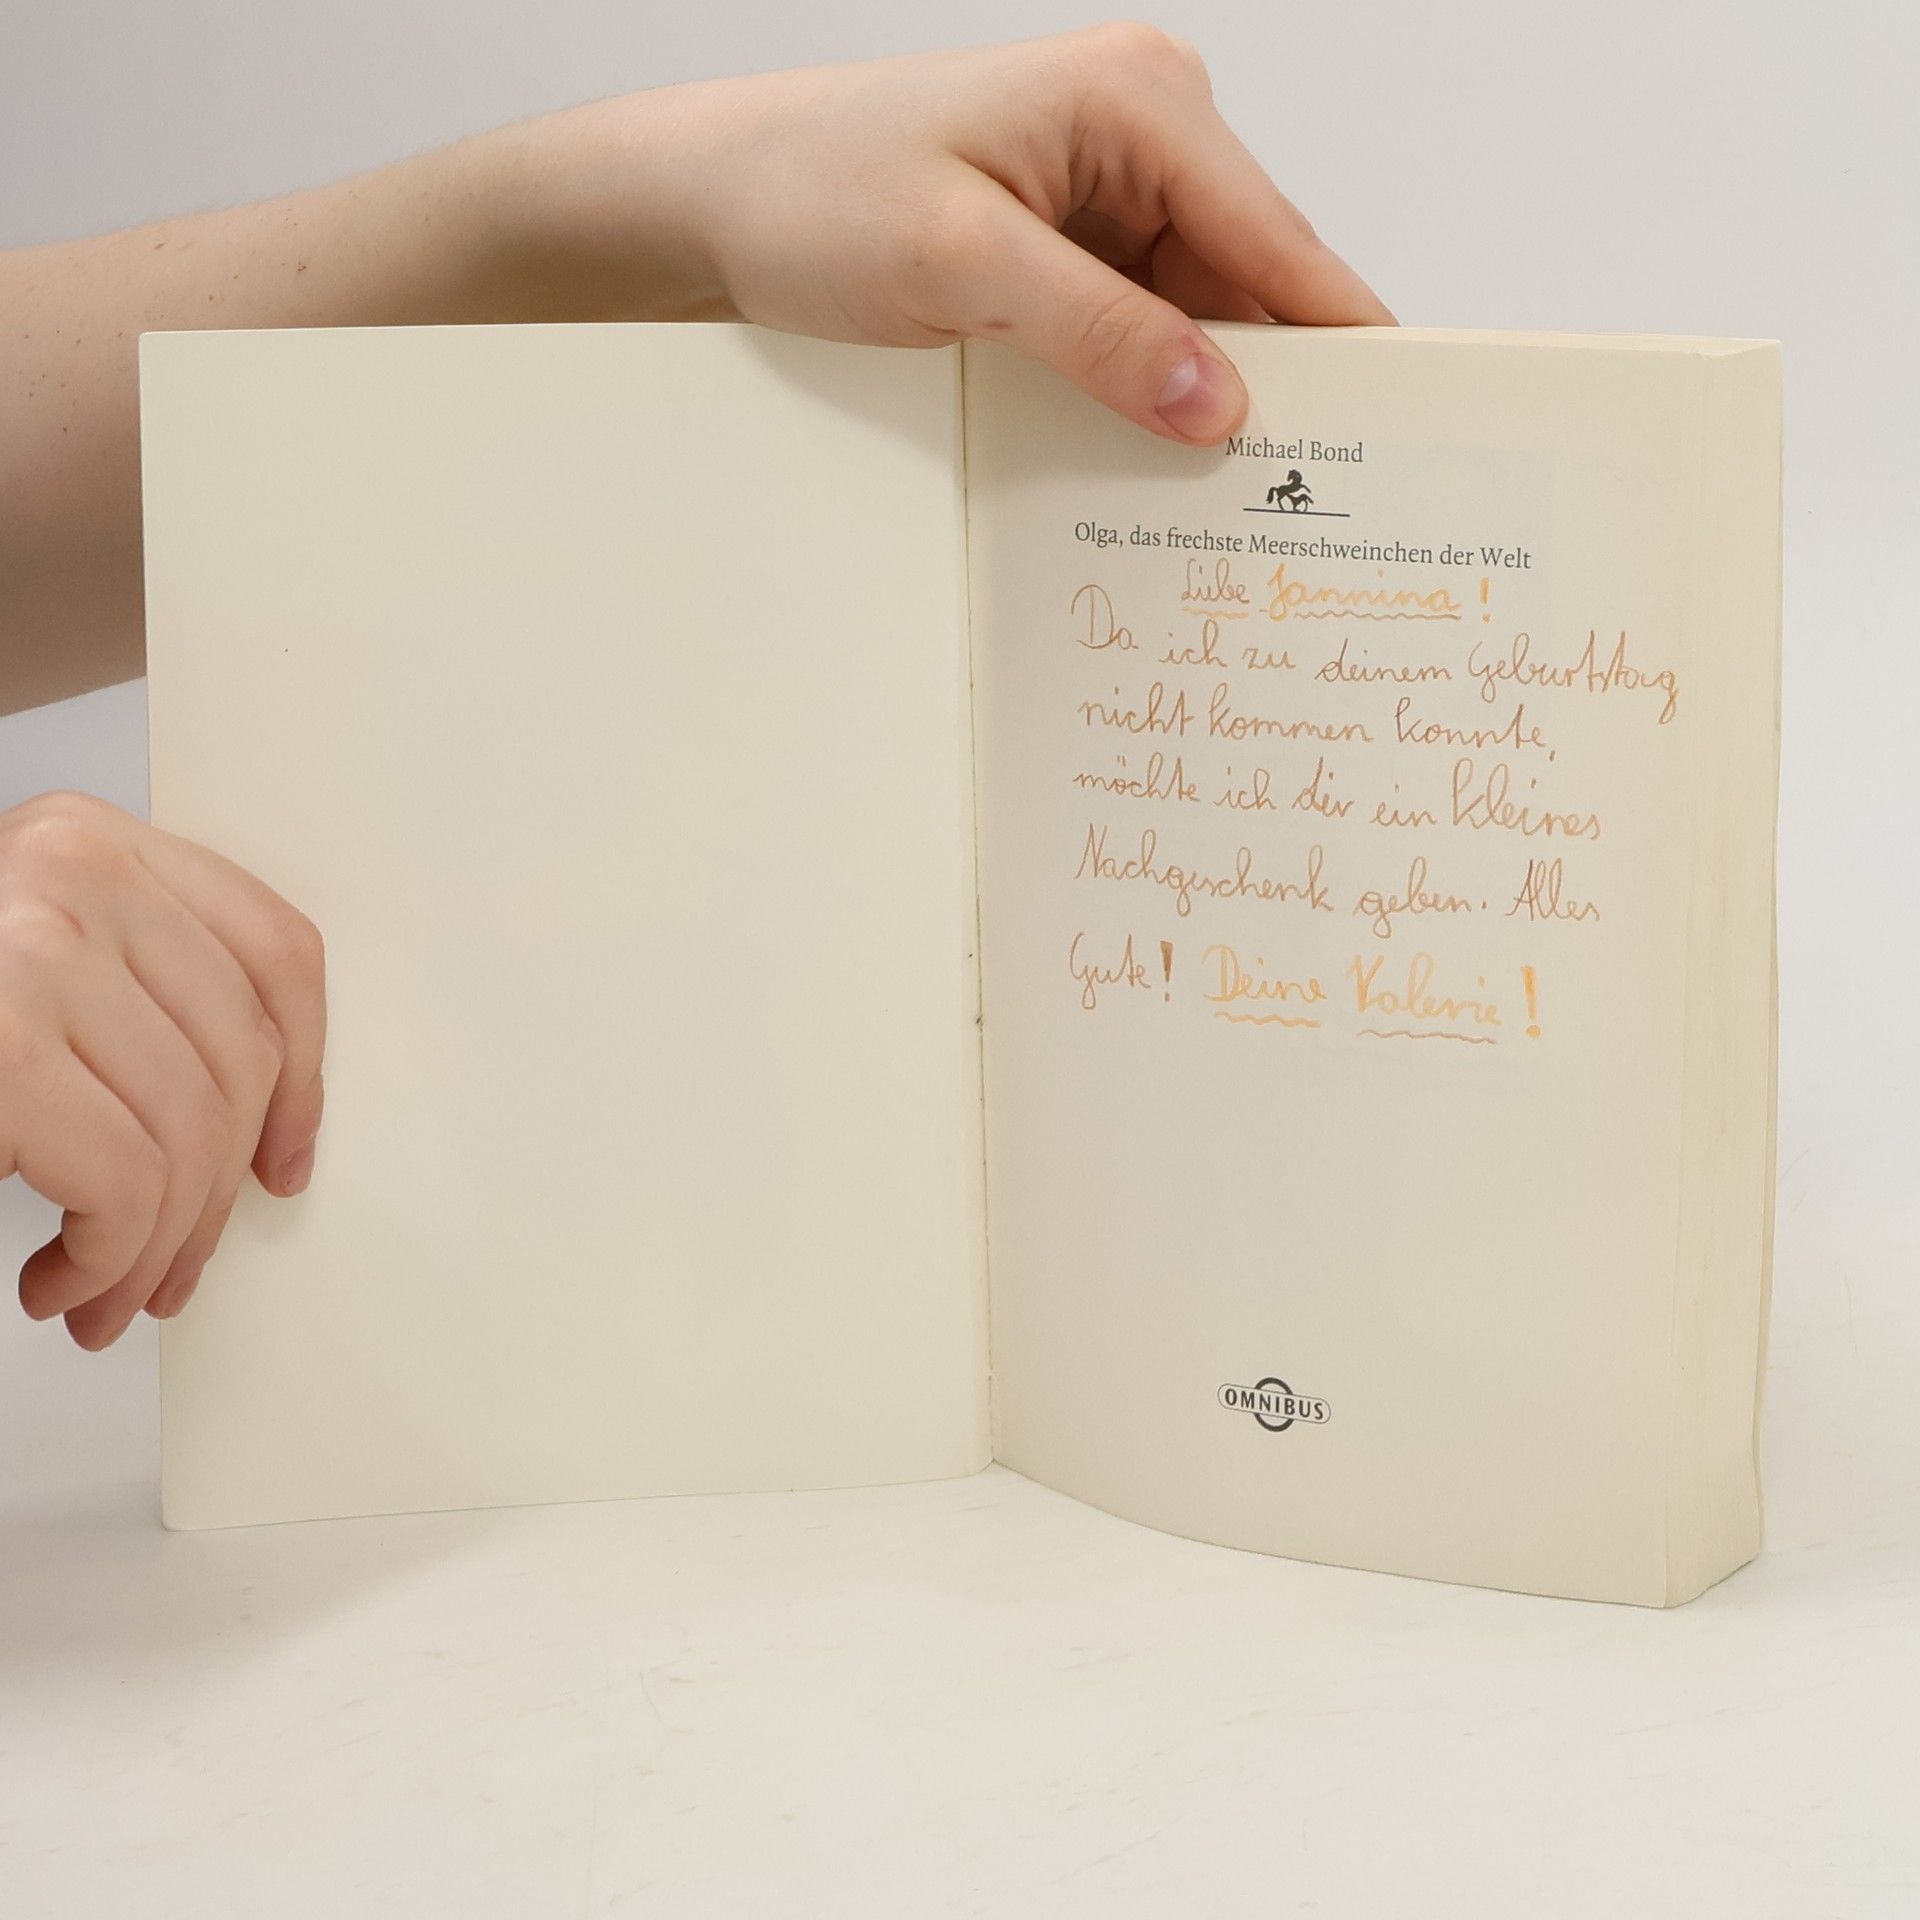 Michael Bond
Olga, das frechste Meerschweinchen der Welt
Liebe Jannina!
Da ich zu deinem Geburtstag
nicht kommen konnte,
möchte ich dir ein kleines
Nachgeschenk geben. Alles
Gute! Deine Valerie!
OMNIBUS